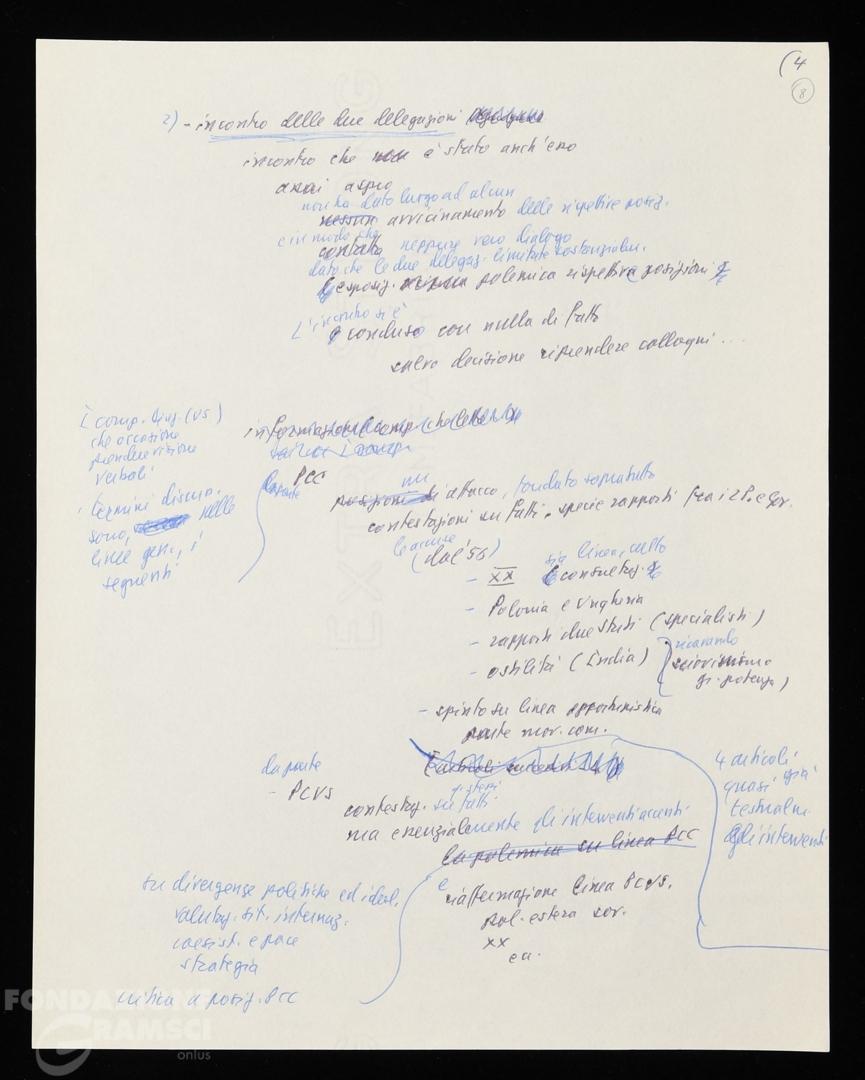 (4
8
2) - incontro delle due delegazioni
incontro che è stato anch'esso
assai aspro
non ha dato luogo ad alcun
nessun avvicinamento delle rispettive posiz.
e in modo che
contatto neppure vero dialogo
dato che le due delegaz. limitate sostanzialm.
esposiz. polemica rispettive posizioni
L'incontro si è
concluso con nulla di fatto
salvo decisione riprendere colloqui ...
I comp. dirig. (US)
che occasione
prendere visione
verbali
termini discus.
sono, nelle
linee gen., i
seguenti
informazione comp. che
da parte
PCC
un
posizioni di attacco, fondato sopratutto
contestazioni su fatti, specie rapporti fra i 2 P. e Gov.
le accuse
(dal '56)
sia linea, culto
- XX consultaz.
- Polonia e Ungheria
- rapporti due Stati (specialisti)
- ostilità (India)
sciovinismo
gr. potenza)
- spinto su linea opportunistica
parte mov. com.
da parte
- PCUS
contestaz. su fatti
ma essenzialmente gli interventi accenti
la polemica su linea PCC
4 articoli
quasi già
testualm.
gli interventi
su divergenze politiche ed ideol.
valutaz. sit. internaz.
coesist. e pace
strategia
critica a posiz. PCC
e
riaffermazione linea PCUS.
pol. estera sov.
XX
ecc.
FONDAZIONE
GRAMSCI
onlus